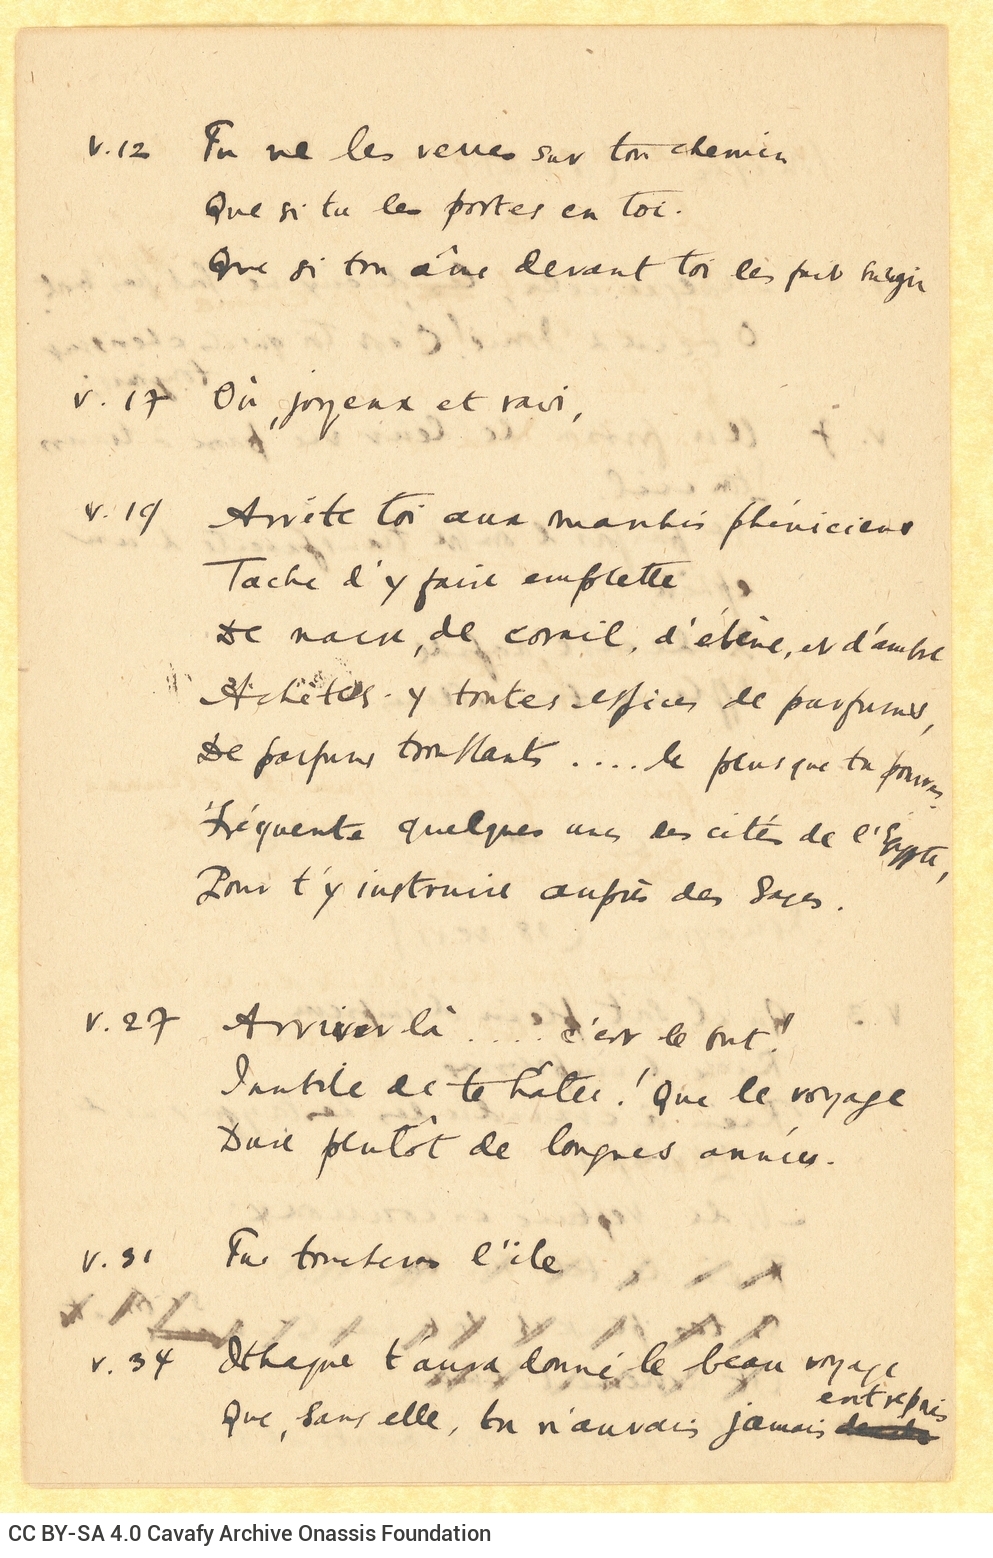 v.12 Tu ne les verras sur ton chemin
Que si tu les portes en toi.
Que si ton âme devant toi les fait surgir
v. 17 Où, joyeux et ravi,
v. 19 Arrête toi aux marchés phéniciens
Tache d'y faire emplette
De nacre, de corail, d'ébène, et d'ambre
Achètes-y toutes espèces de parfums,
De parfums troublants .... le plus que tu pourras.
Fréquente quelques unes des cités de l'Egypte,
Pour t'y instruire auprès des Sages.
v. 27 Arriver là ..... c'est le but!
Inutile de te hâter! Que le voyage
Dure plutôt de longues années.
v. 31 Tu toucheras l'île
v. 34 Ithaque t'aura donné le beau voyage
entrepris
Que, sans elle, tu n'aurais jamais
CC BY-SA 4.0 Cavafy Archive Onassis Foundation